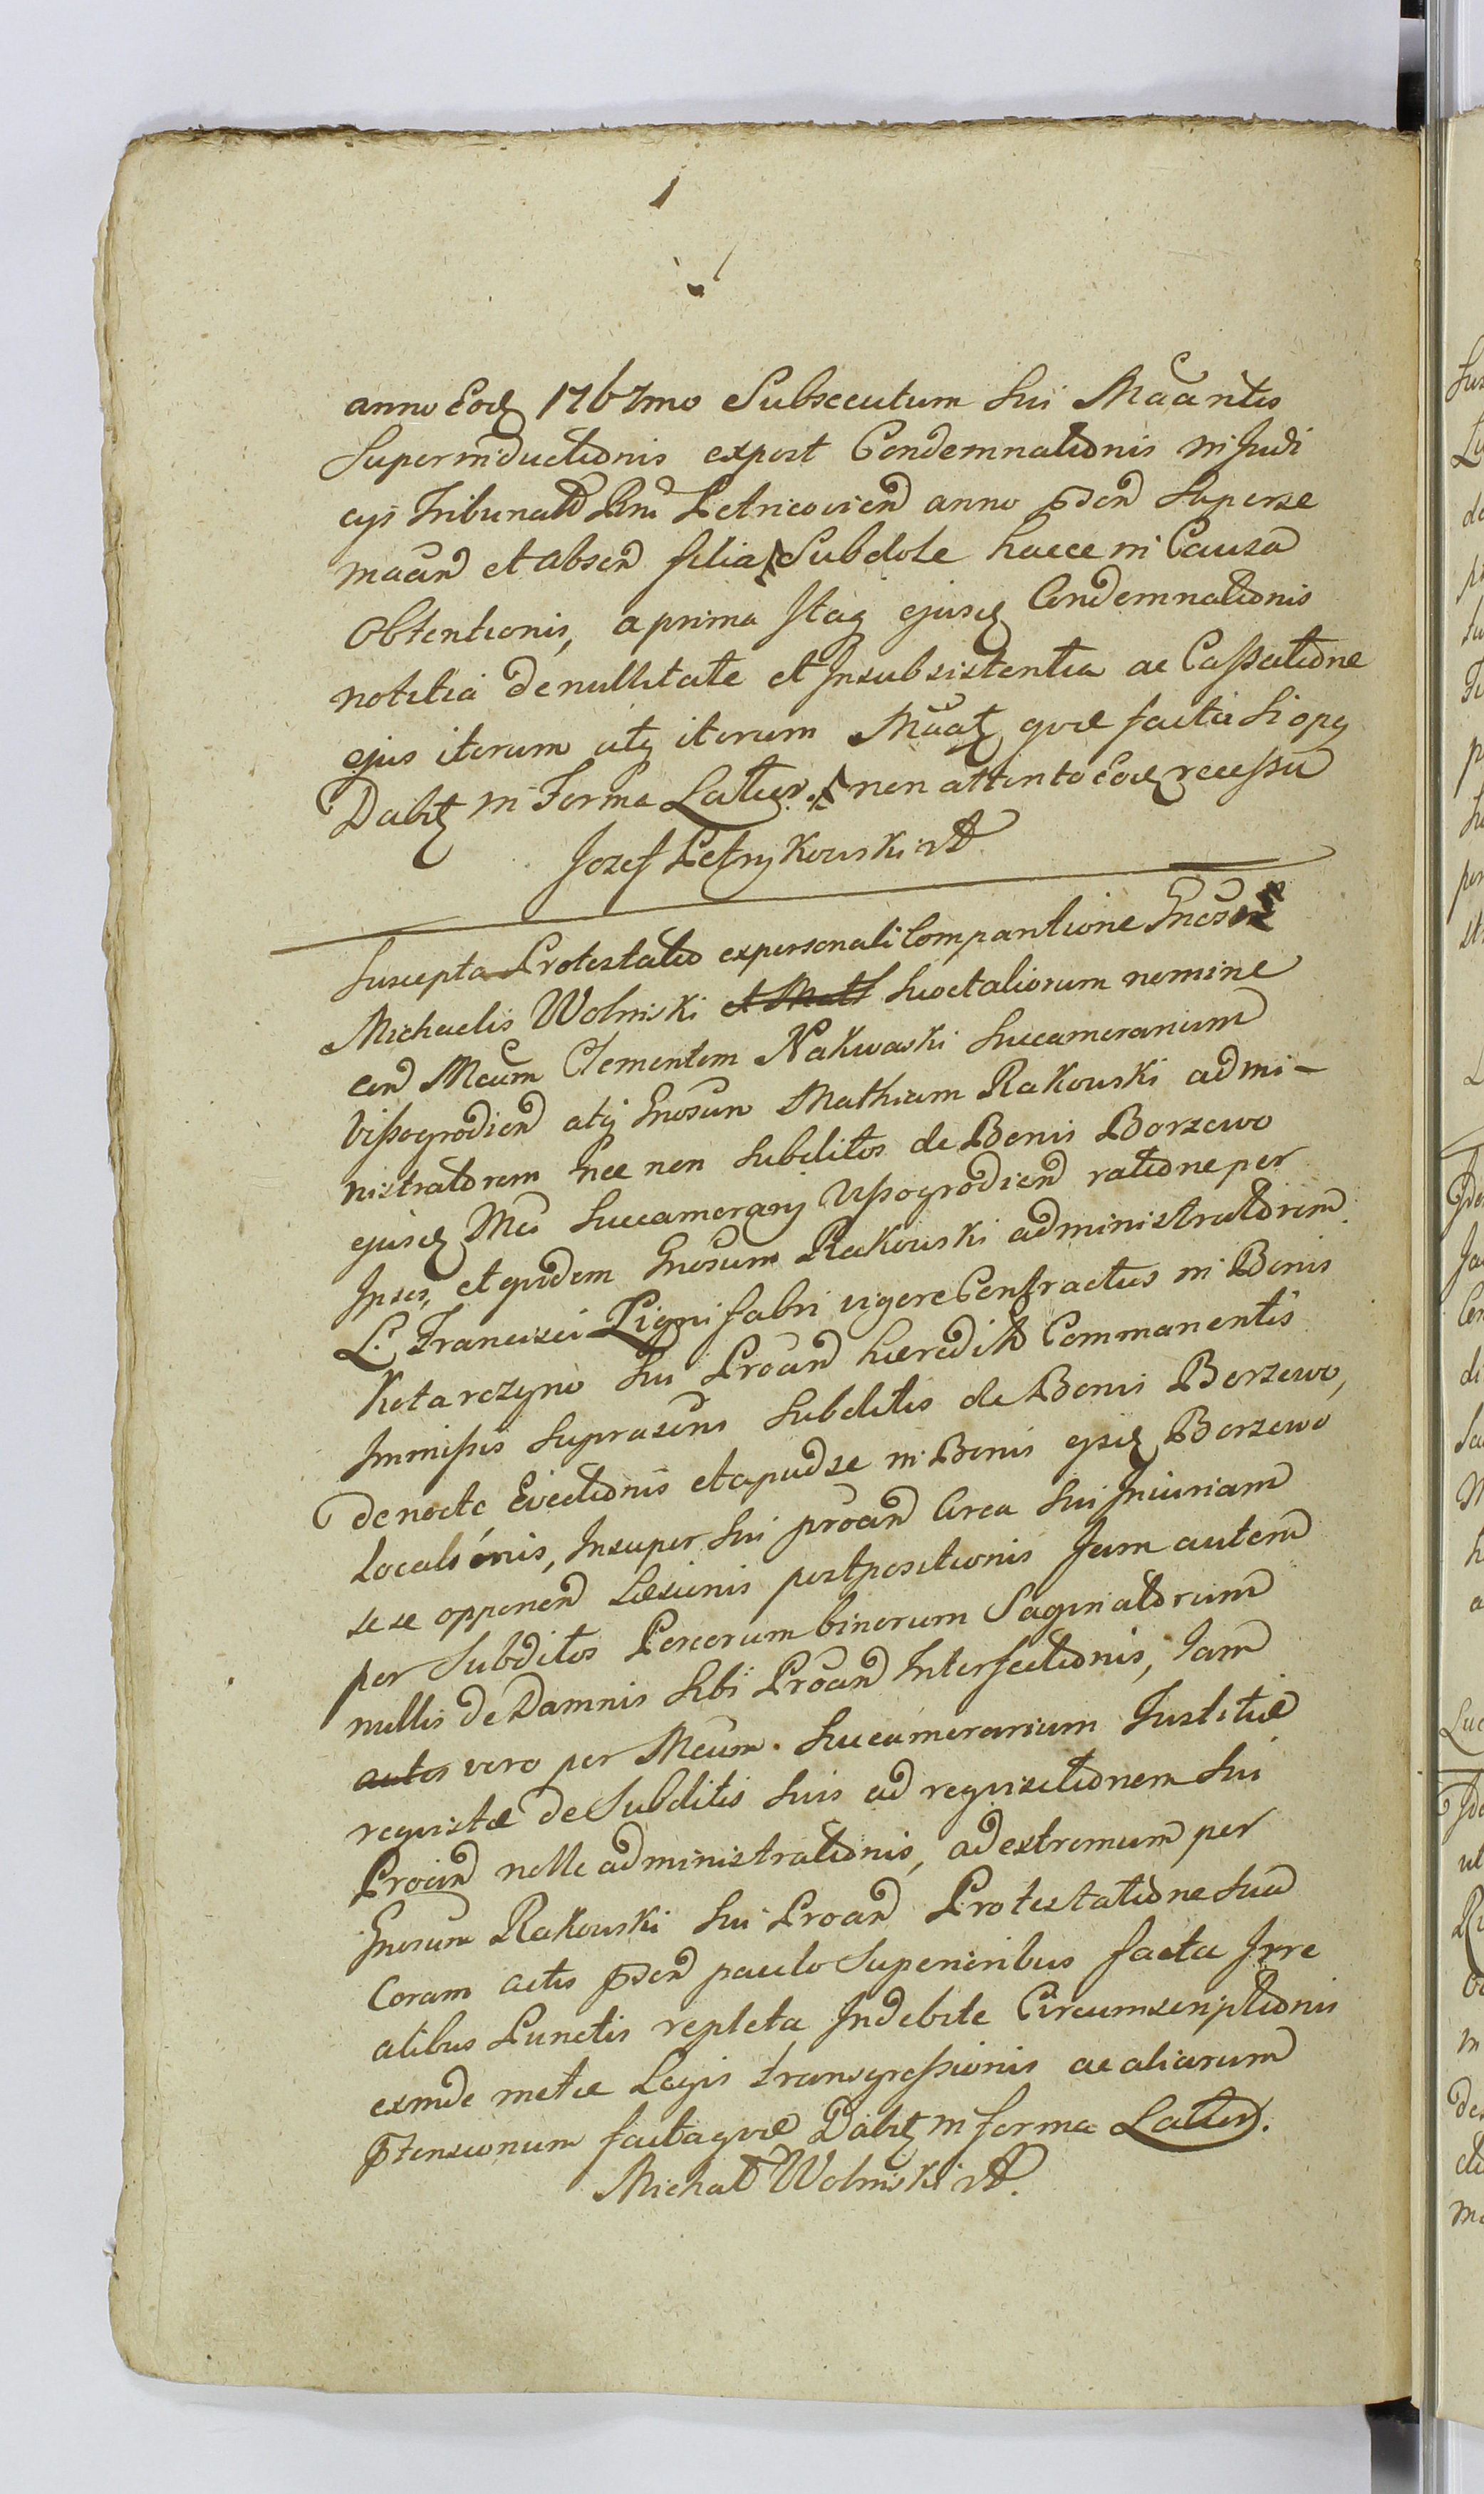 anno Eodꝫ 1767mo Subsecutum Sui Maantis
Superinductionis expost Condemnationis in Judi
cys Tribunalị Rni Petricovien anno pden Superse
maan et absen filia Subdole haece in Causa
Obtentionis, a prima Stag ejusdꝫ Condemnationis
notitia de nullitate et Insubsistentia ac Cassatione
ejus iterum atqꝫ iterum Maatꝫ qvæ facta Si opꝫ
Dabitꝫ in Forma Latiỹ. non attento Eodꝫ recessu
Jozef Petrykowski
Suscepta Protestatio ex personali Comparitione Gnosi
Michaelis Wolniski et Math Suoetaliorum nomine
con Mcum Clementem Nakwaski Succamerarium
Vissogrodien atqꝫ Gnosum Mathiam Rakowski admi-
nistratorem nec non Subditos de Bonis Borzewo
ejusdꝫ Mci Succamerarij Vyssogrodien ratione per
Ipsos, et qvidem Gnosum Rakowski administratorem
L. Francisci Lignifabri vigore Contractus in Bonis
Kotarczyno Sui Proan hæredit Commanentis
Immissis Suprascris Subditis de Bonis Borzewo,
de nocte Evectionis et apud se in Bonis ejsdꝫ Borzewo
Localiõnis, Insuper Sui proan Circa Sui Iniuriam
sese opponen Læsionis postpositionis Jam autem
per Subditos Porcorum binorum Saginatorum
nullis de Damnis Sibi Proan Interfectionis, Jam
autos vero per Mcum Succamerarium Justitiæ
requistæ de Subditis Suis ad requisitionem Sui
Proan nolle administrationis, ad extremum per
Gnosum Rakowski Sui Proan Protestatione Sua
Coram actis pden paulo Superioribus facta Irre
alibus Punctis repleta Indebite Circumscriptionis
exinde metæ Legis transgressionis ac aliarum
ptensionum facta qvæ Dabitꝫ in forma Latiỹ.
Michał Wolniski